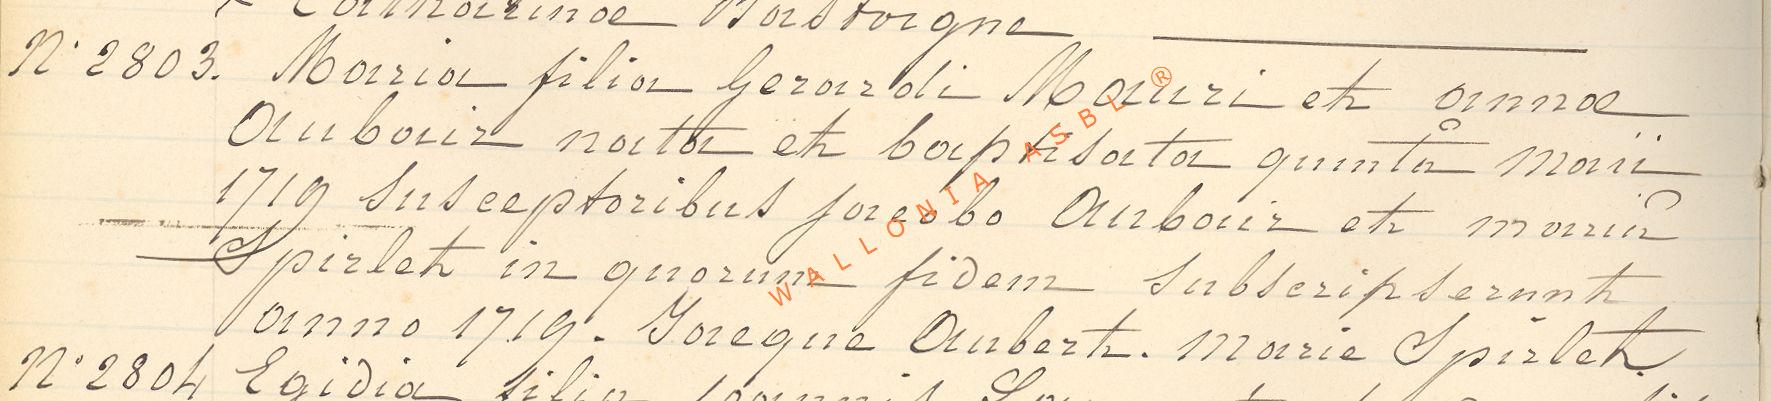 Catharinae Bastoigne
N° 2803. Maria filia Gerardi Mauri et annae
Aubair nata et baptisata quintâ maii
1719 susceptoribus jacobo Aubair et mariâ
Spirlet in quorum fidem subscripserunt
anno 1719. Jacque Aubert. Marie Spirlet
N° 2804 Egidia filia joannis
WALLONIA ASBL ®